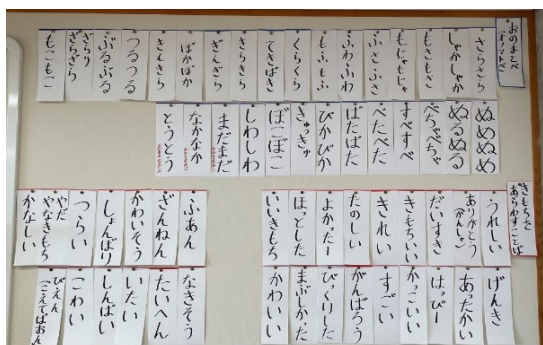 おのまとぺ
(オノマトペ)
さらさら
しゃかしゃか
もさもさ
もじゃもじゃ
ふさふさ
ふわふわ
もふもふ
くらくら
てきぱき
きらきら
ぎんぎら
ぽかぽか
きんきら
つるつる
ぷるぷる
ざらり
ざらざら
もこもこ
ぬめぬめ
ぬるぬる
べちゃべちゃ
すべすべ
べたべた
ぱたぱた
ぴかぴか
きゅっきゅ
ぼこぼこ
しわしわ
まだまだ
なかなか
とうとう
きもちを
あらわすことば
うれしい
ありがとう
(かんしゃ)
だいすき
きもちいい
きれい
たのしい
よかったー
ほっとした
いいきもち
げんき
あったかい
はっぴー
かっこいい
すごい
がんばろう
びっくりした
まぶしかた
かわいい
ふあん
ざんねん
かわいそう
しょんぼり
つらい
やだ
やなきもち
かなしい
なきそう
たいへん
いたい
しんぱい
こわい
ぴえん
(こえてぱおん)